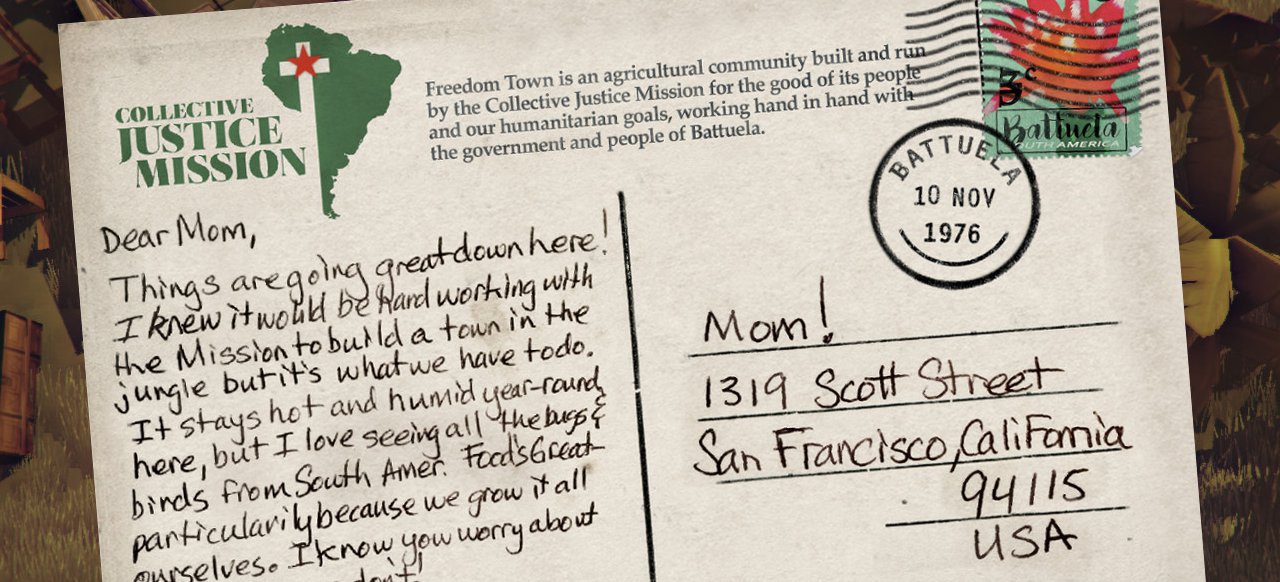 COLLECTIVE
JUSTICE
MISSION
Freedom Town is an agricultural community built and run
by the Collective Justice Mission for the good of its people
and our humanitarian goals, working hand in hand with
the government and people of Battuela.
3c
Battuela
SOUTH AMERICA
BATTUELA
10 NOV
1976
Dear Mom,
Things are going great down here!
I knew it would be hard working with
the Mission to build a town in the
jungle but it's what we have to do.
It stays hot and humid year-round
here, but I love seeing all the bugs &
birds from South Amer. Food's Great
particularily because we grow it all
ourselves. I know you worry about
don't!
Mom!
1319 Scott Street
San Francisco, California
94115
USA